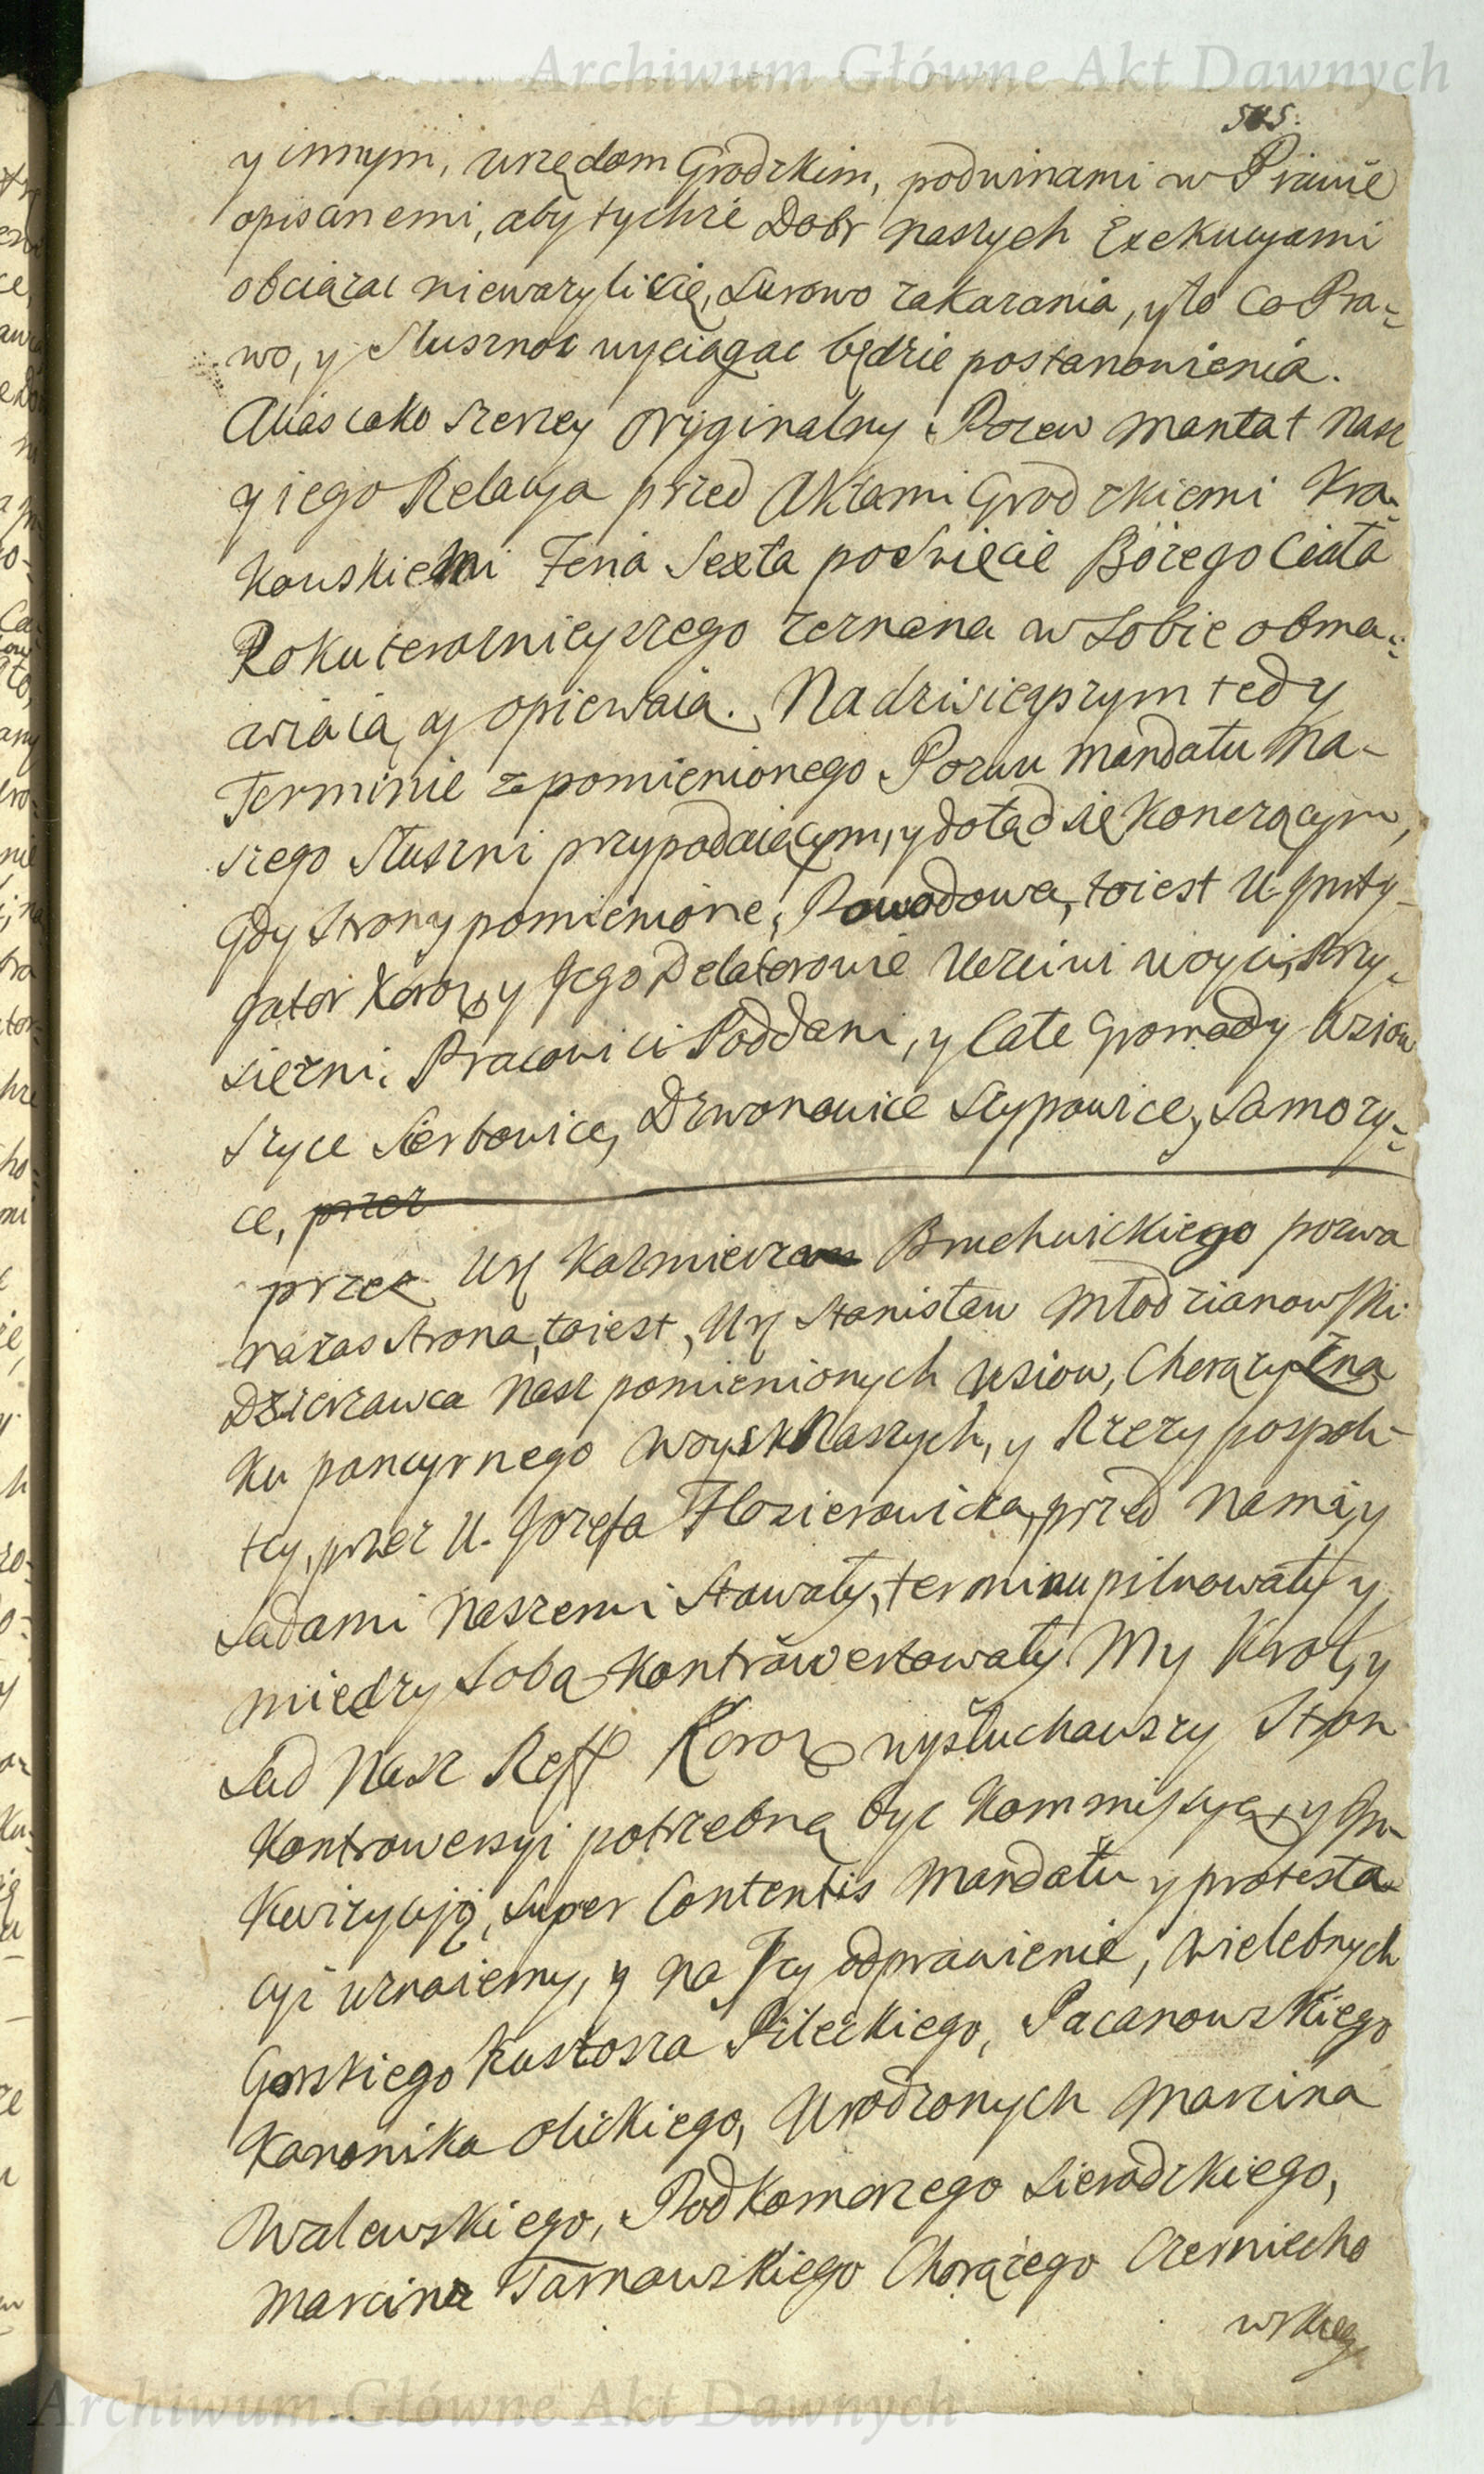 Archiwum Główne Akt Dawnych
505.
y innym, urzędom Grodzkim, podwinami w Prawie
opisanemi, aby tychże Dobr naszych Exekucyami
obciązac nieważyli się, surowo zakazania, y to co Pra=
wo, y Słusznoc wyciągac będzie postanowienia.
Alias iako szerzey oryginalny Pozew mantat Nasz
y iego Relacya przed Aktami Grodzkiemi Kra=
kowskiemi Feria Sexta po Swięcie Bożego Ciała
Roku teraznieyszego zeznana w sobie obma=
wiaią y opiewaią. Na dzisieyszym tedy
Terminie z pomienionego Pozwu mandatu Na=
szego Słuszni przypadaiącym, y dotąd się konczącym,
gdy strony pomienione, Powodowa, toiest U. Insty=
gator Koron, y Jego Delatorowie Uczciwi woyci, Przy=
sięzni, Pracowici Poddani, y Całe Gromady Wsiow
Szyce Sierbowice, Dzwonowice Szypowice, Samozy=
ce, przez
przez Ur Kazmierza Bruchwickiego pozwa
na zas strona, toiest, Ur Stanisław Młodzianowski
Dzierzawca Nasz pomienionych Wsiow, Chorązy Zna
ku pancyrnego Woysk Naszych, y Rzezypospoli=
tey, przez U. Jozefa Flozierowicza, przed Nami, y
Sądami Naszemi Stawały, terminu pilnowały y
miedzy sobą kontrowertowały. My Krol, y
Sąd Nasz Reff Koron wysłuchawszy Stron
Kontrowersyi potrzebną byc Kommissyą, y In=
kwizycyją, super Contentis Mandatu y protesta=
cyi uznaiemy, y na Jey odprawienie, Wielebnych
Gorskiego Kustosza Pileckiego, Pacanowskiego
Kanonika Olickiego, Urodzonych Marcina
Walewskiego, Podkomorzego Sieradzkiego,
Marcina Tarnowskiego Chorązego Czerniecho
wskieg
Archiwum Główne Akt Dawnych